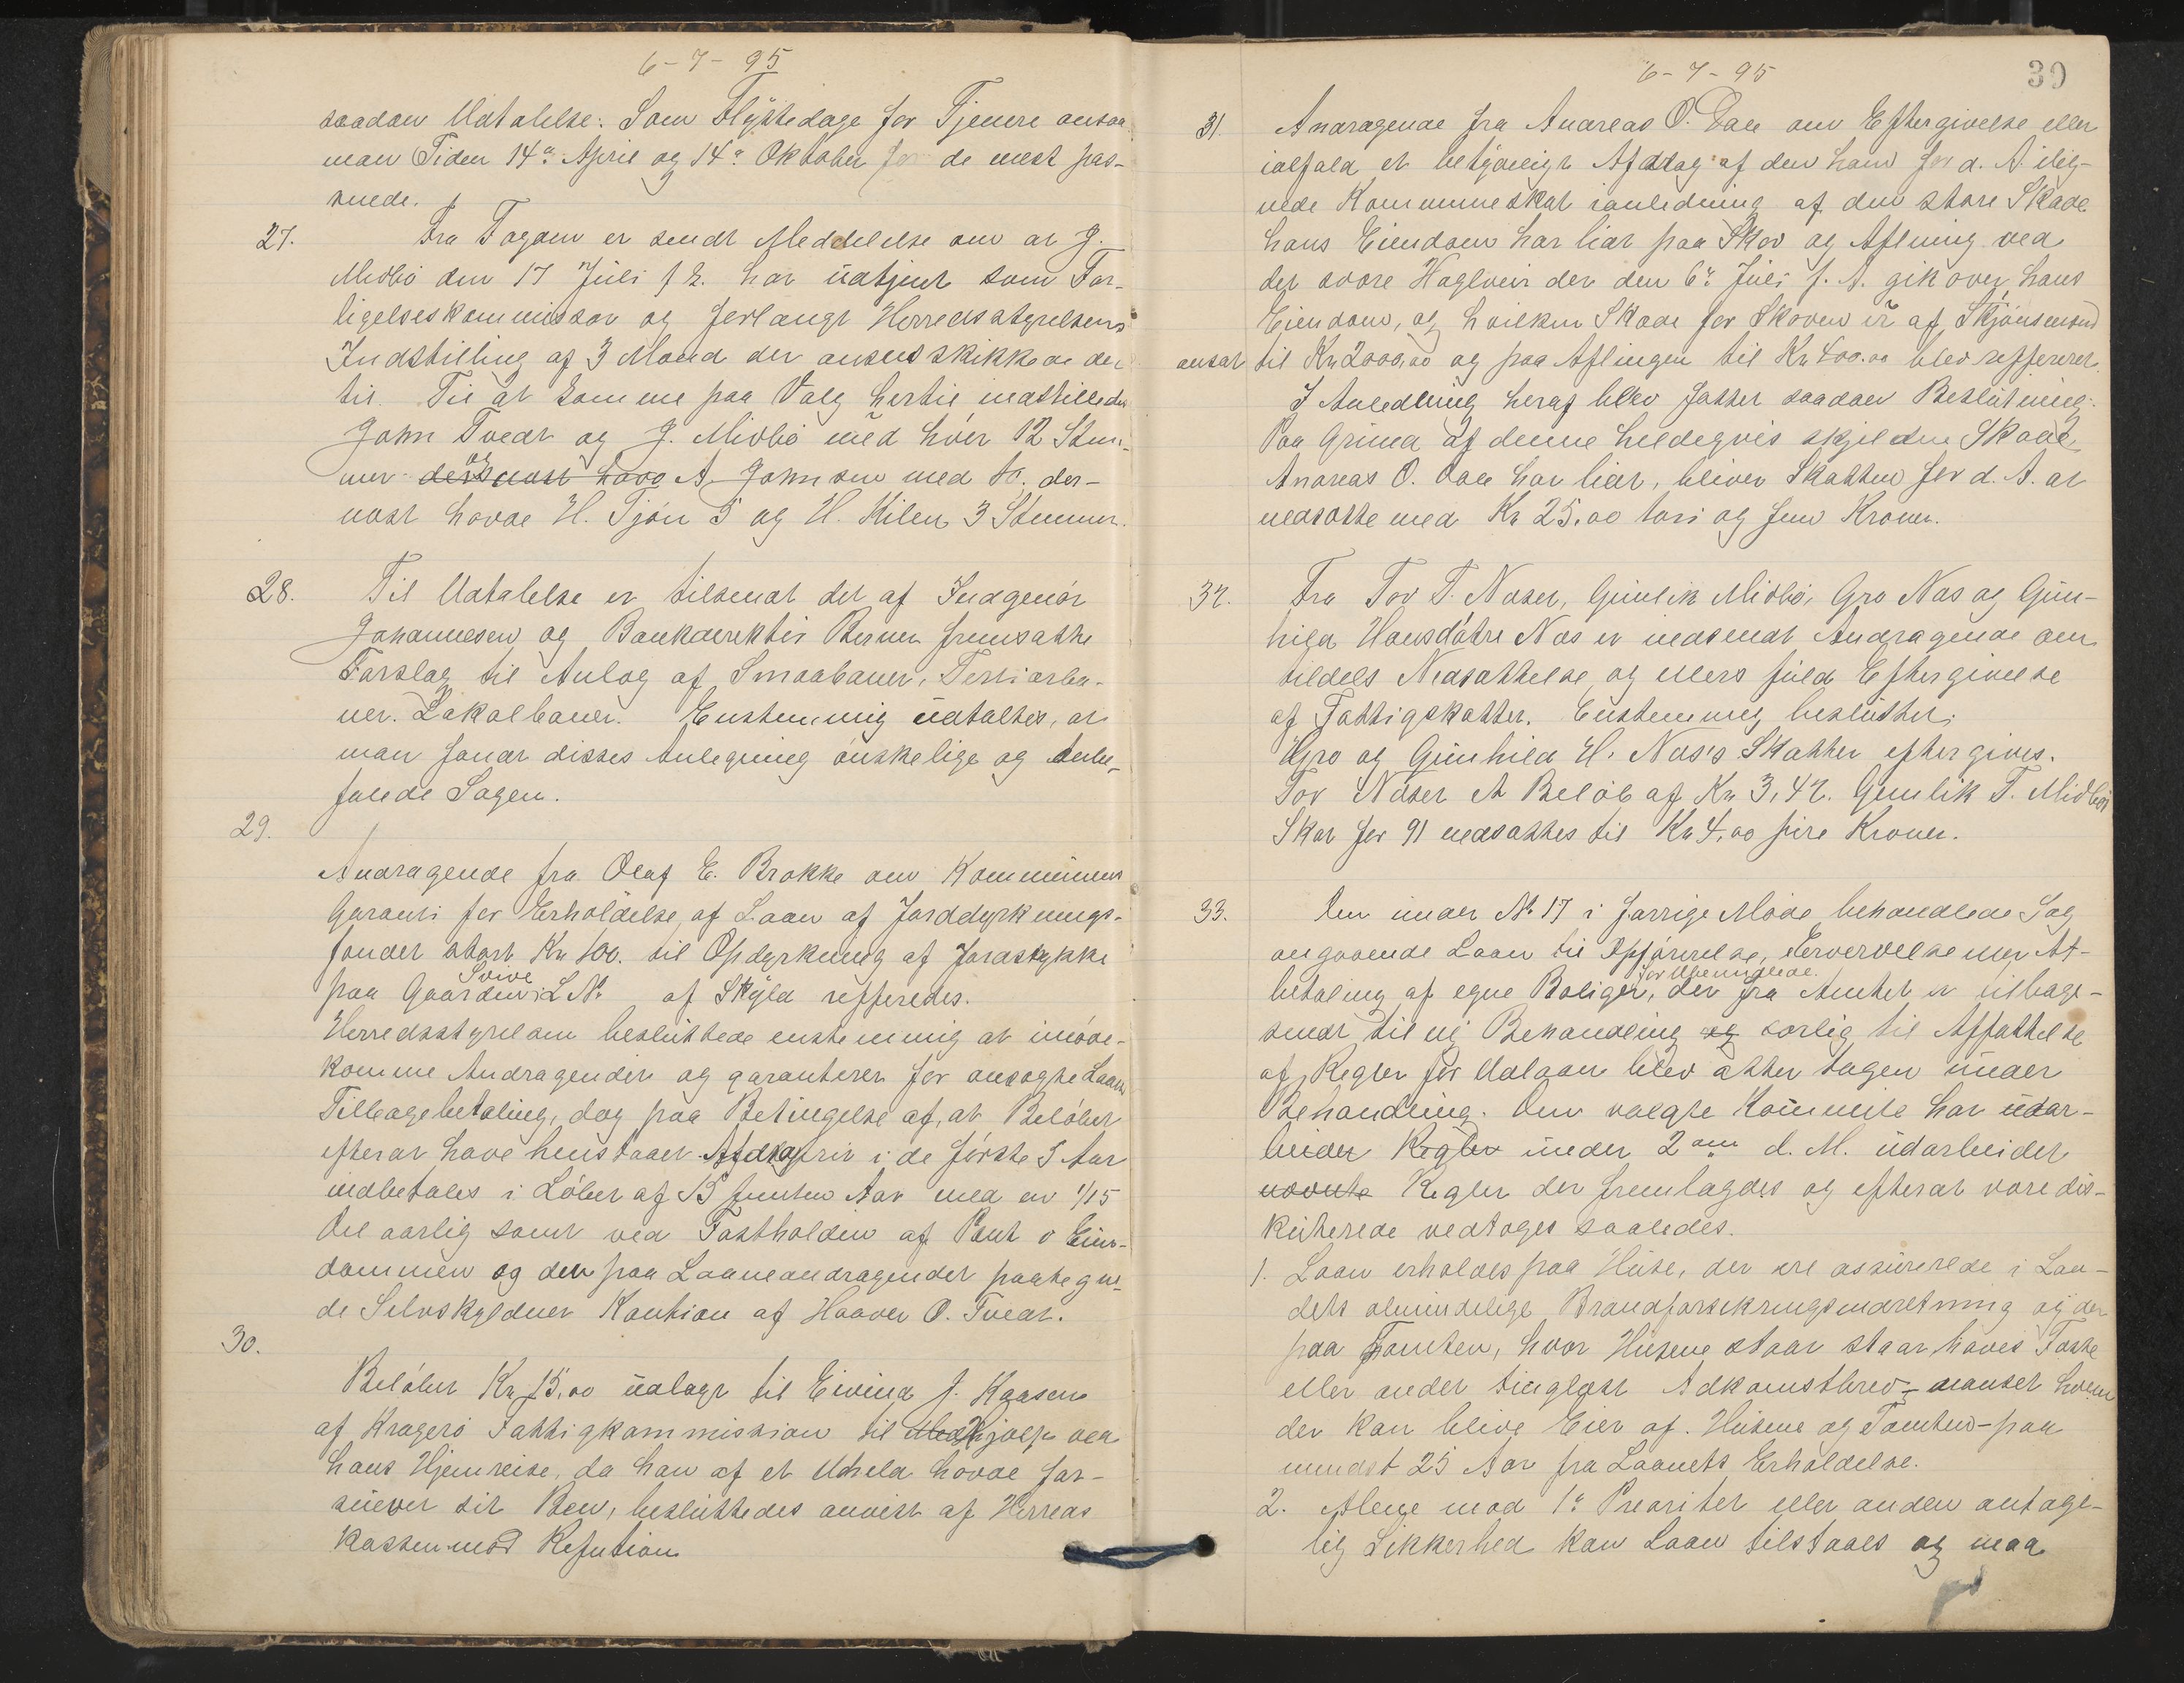 6-7-95
saadan Udtalelse: Som Flyttedage for Tjenere ansaa
man Tiden 14de April og 14de Oktober for de mest pas-
sende.
27. Fra Fogden er sendt Meddelelse om at J.
Midbö den 17 Juli f. k. har udtjent som For-
ligelseskommissær og forlangt Herredsstyrelsens
Indstilling af 3 Mænd der ansees skikkede der
til. Til at komme paa Valg hertil indstilledes
John Tvedt og J. Midbö med hver 12 Stem-
mer dernæst havde og A. Johnsen med 10. der-
næst havde H. Tjön 5 og H. Kilen 3 Stemmer.
28. Til Udtalelse er tilsendt det af Indgeniör
Johannesen og Bankdirektör Berner fremsatte
Forslag til Anlæg af Smaabaner, Tertiærba-
ner. Lokalbaner. Enstemmig udtaltes, at
man fandt disses Anlegning önskelige og anbe-
falede Sagen.
29.
Andragende fra Olaf E. Brokke om Kommunens
Garanti for Erholdelse af Laan af Jorddyrknings-
fondet stort Kr 400. til Opdyrkning af Jordstykke
Svive
paa Gaarden L.No af Skyld refferedes.
Herredsstyrelsen besluttede enstemmig at imöde-
komme Andragendet og garanterer for ansögte Laans
Tilbagebetaling, dog paa Betingelse af, at Belöbet
efterat have henstaaet Afdragsfrit i de förste 5 Aar
indbetales i Löbet af 15 femten Aar med en 1/15
Del aarlig samt ved Fastholden af Pant i Eien-
dommen og den paa Laaneandragendet paategne-
de Selvskyldner Kaution af Haaver O. Tvedt.
30.
Belöbet Kr 15,00 udlagt til Eivind J. Kaasen
af Kragerö Fattigkommission til Hjælp ved
hans Hjemreise, da han af et Uheld havde for-
stuvet sit Ben, besluttedes anvist af Herreds
kassen mod Refution
6-7-95
39
31. Andragende fra Andreas O. Dale om Eftergivelse eller
ialfald et betydeligt Afdrag af den ham for d. A. ilig-
nede Kommuneskat ianledning af den store Skade
hans Eiendom har lidt paa Skov og Afling ved
det svære Haglveir der den 6te Juli f. A. gik over hans
Eiendom, og hvilken Skade for Skoven er af Skjönsmænd
ansat til Kr 2000,00 og paa Aflingen til Kr 400.00 blev reffereret.
I Anledning heraf blev fattet saadan Beslutning:
Paa Grund af denne heldigvis skjeldne Skade
Andreas O. Dale har lidt, bliver Skatten for d. A. at
nedsætte med Kr 25,00 tyve og fem Kroner.
32. Fra Tov T. Næset, Gunlik Midbö, Gro Næs og Gun-
hild Hansdatre Næs er indsendt Andragende om
tildels Nedsættelse og ellers fuld Eftergivelse
af Fattigskatter. Enstemmig besluttet:
Gro og Gunhild H. Næs's Skatter eftergives.
Tov Næset et Belöb af Kr 3,42. Gunlik T. Midbös
Skat for 91 nedsættes til Kr 4,00 fire Kroner.
33. Den under No 17 i forrige Möde behandlede Sag
angaaende Laan til Opförelse, Erhvervelse eller Af-
for Ubemidlede.
betaling af egne Boliger, der fra Amtet er tilbage-
sendt til ny Behandling og særlig til Affattelse
af Regler for Udlaan blev atter tagen under
Behandling. Den valgte Komitte har udar-
beidet Regler under 2den d. M. udarbeidet
nævnte Regler der fremlagdes og efterat være dis-
kuterede vedtoges saaledes.
1. Laan erholdes paa Huse, der ere assurerede i Lan-
dets almindelige Brandforsikringsindretning og der
paa Tomten, hvor Husene staar staar, haves Fæste
eller andet tinglæst Adkomstbrev – uanset hvem
der kan blive Eier af Husene og Tomten – paa
mindst 25 Aar fra Laanets Erholdelse.
2. Alene mod 1ste Prioritet eller anden antage-
lig Sikkerhed kan Laan tilstaaes og maa